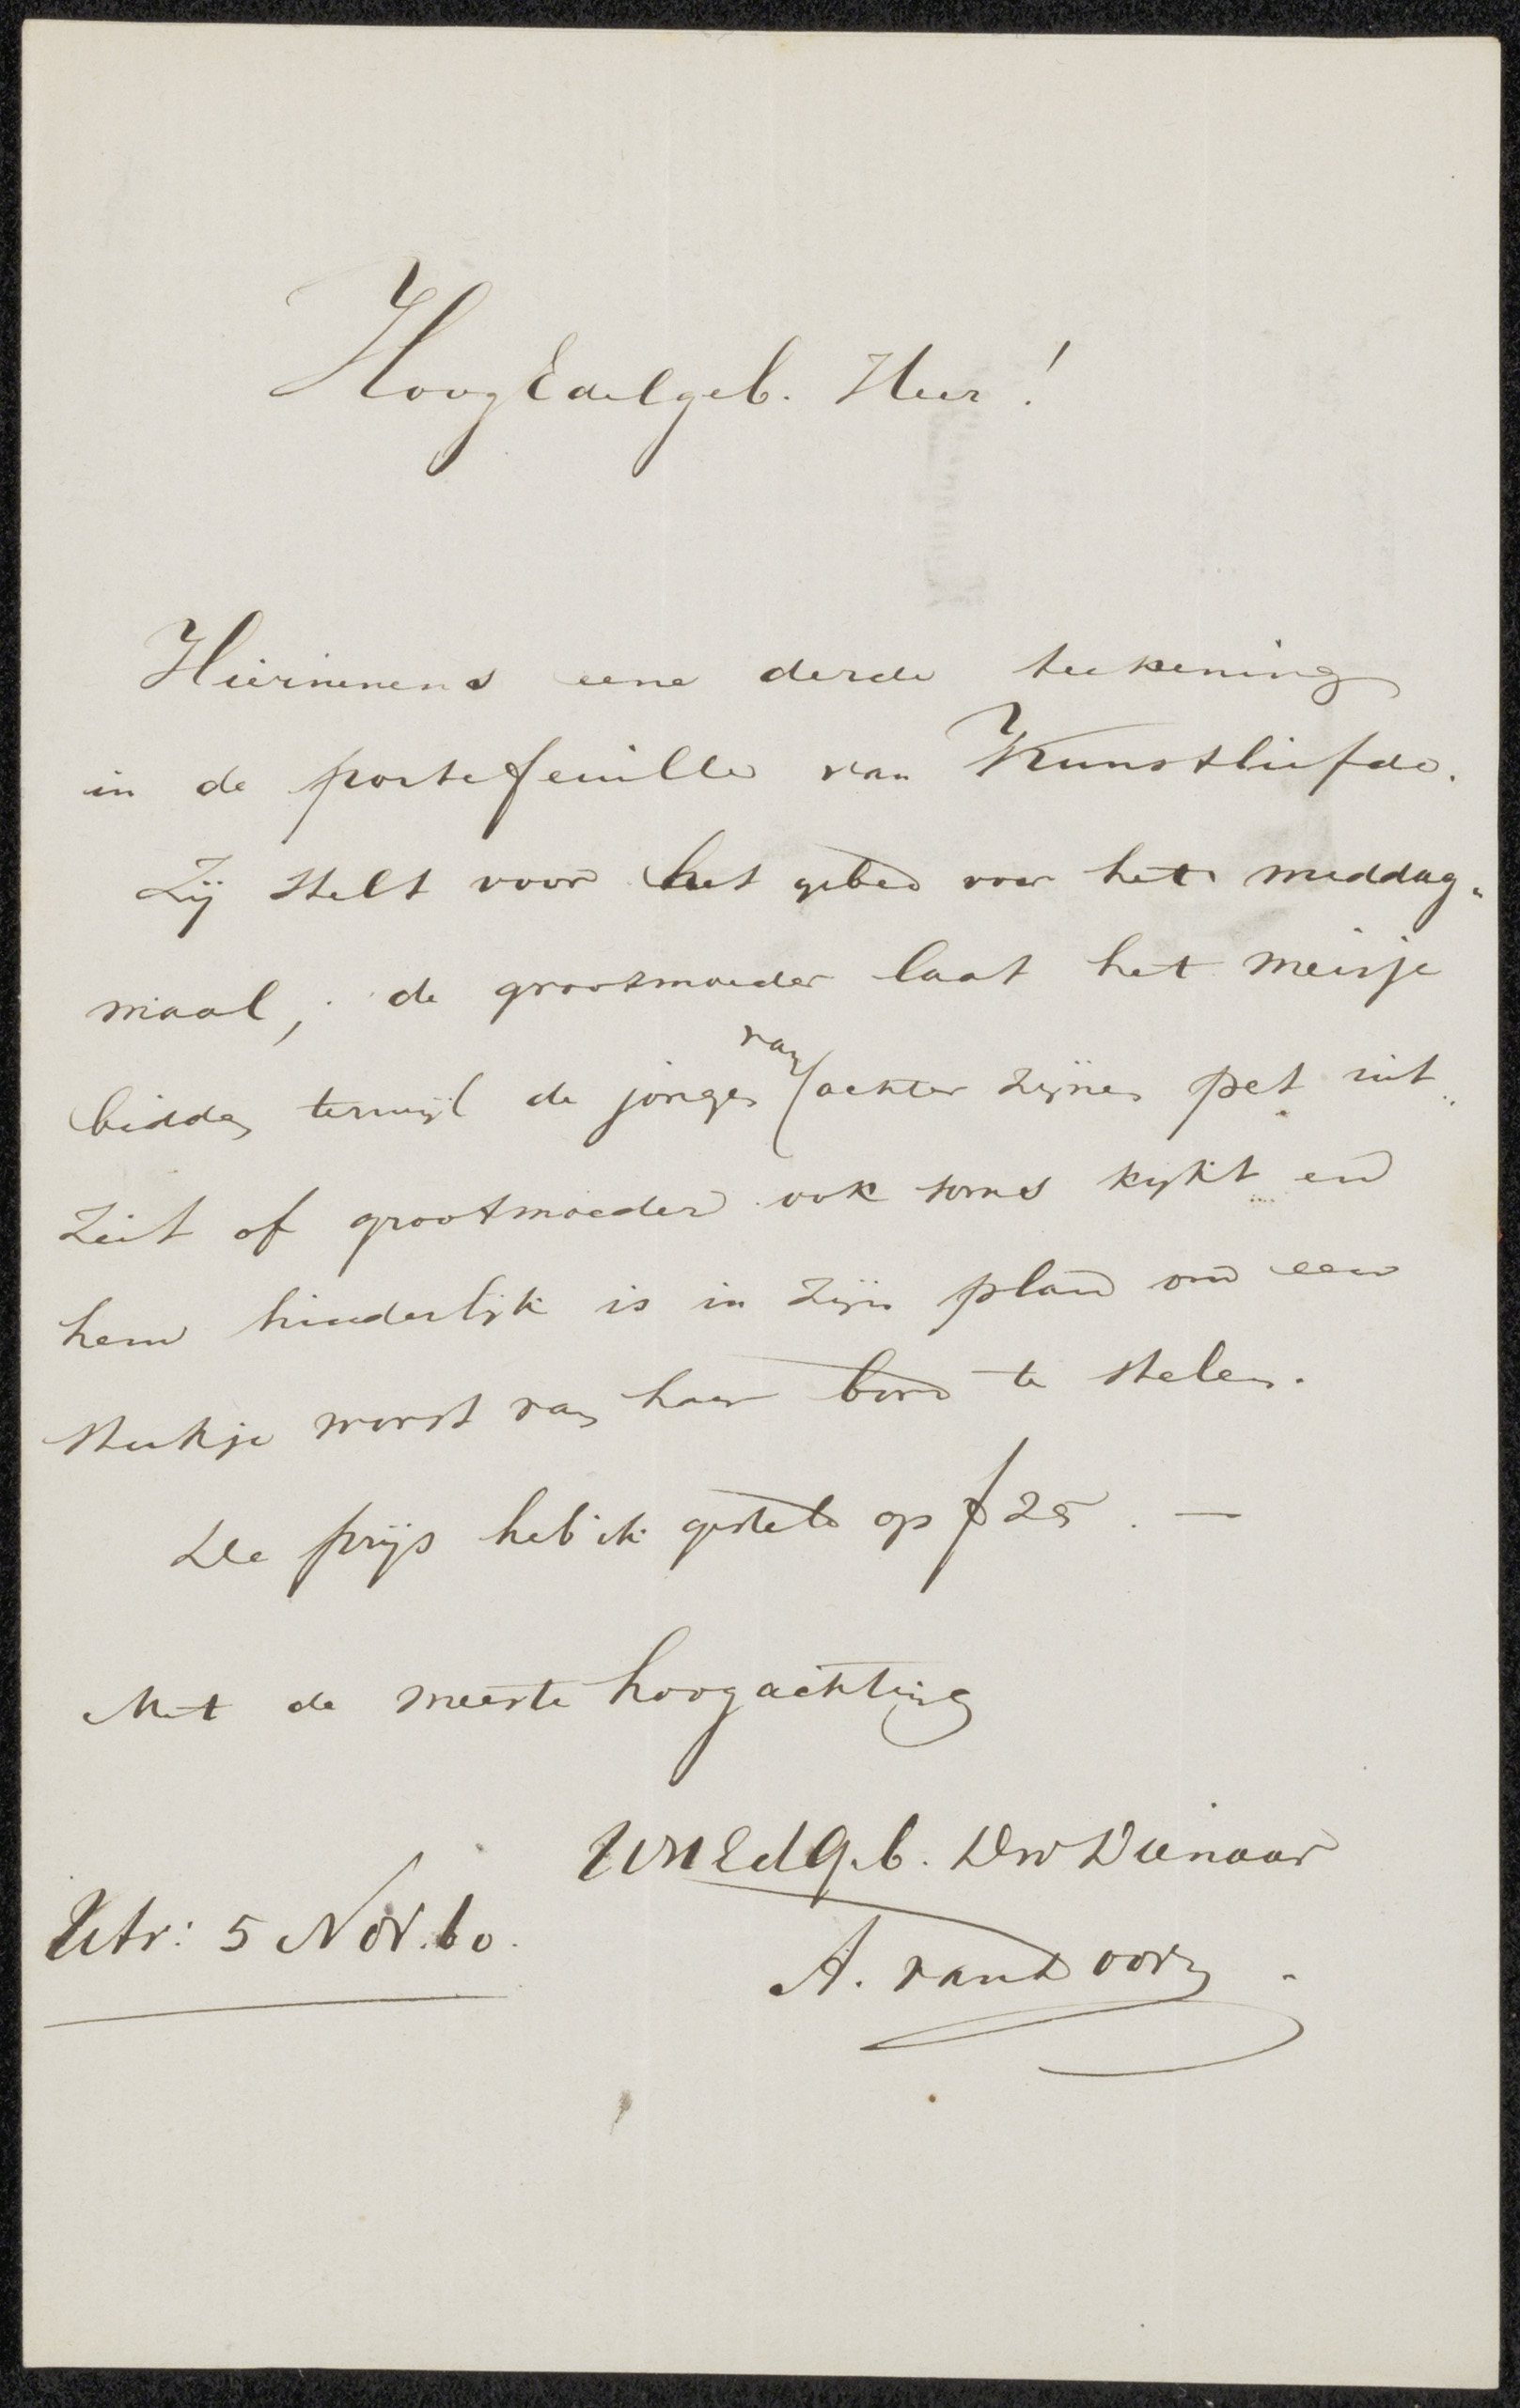 HoogEdelgeb. Heer!
Hiernevens eene derde teekening
in de portefeuille van Kunstliefde.
Zij stelt voor het gebed voor het middag-
maal, de grootmoeder laat het meisje
bidden terwijl de jongen van achter zijne pet uit
ziet of grootmoeder ook soms kijkt en
hem hinderlijk is in zijn plan om een
stukje worst van haar bord te stelen.
De prijs heb ik gesteld op f 25. —
Met de meeste hoogachting
UwEdGeb. Dw Dienaar
Utr: 5 Nov. 60.
A. van Doorn.